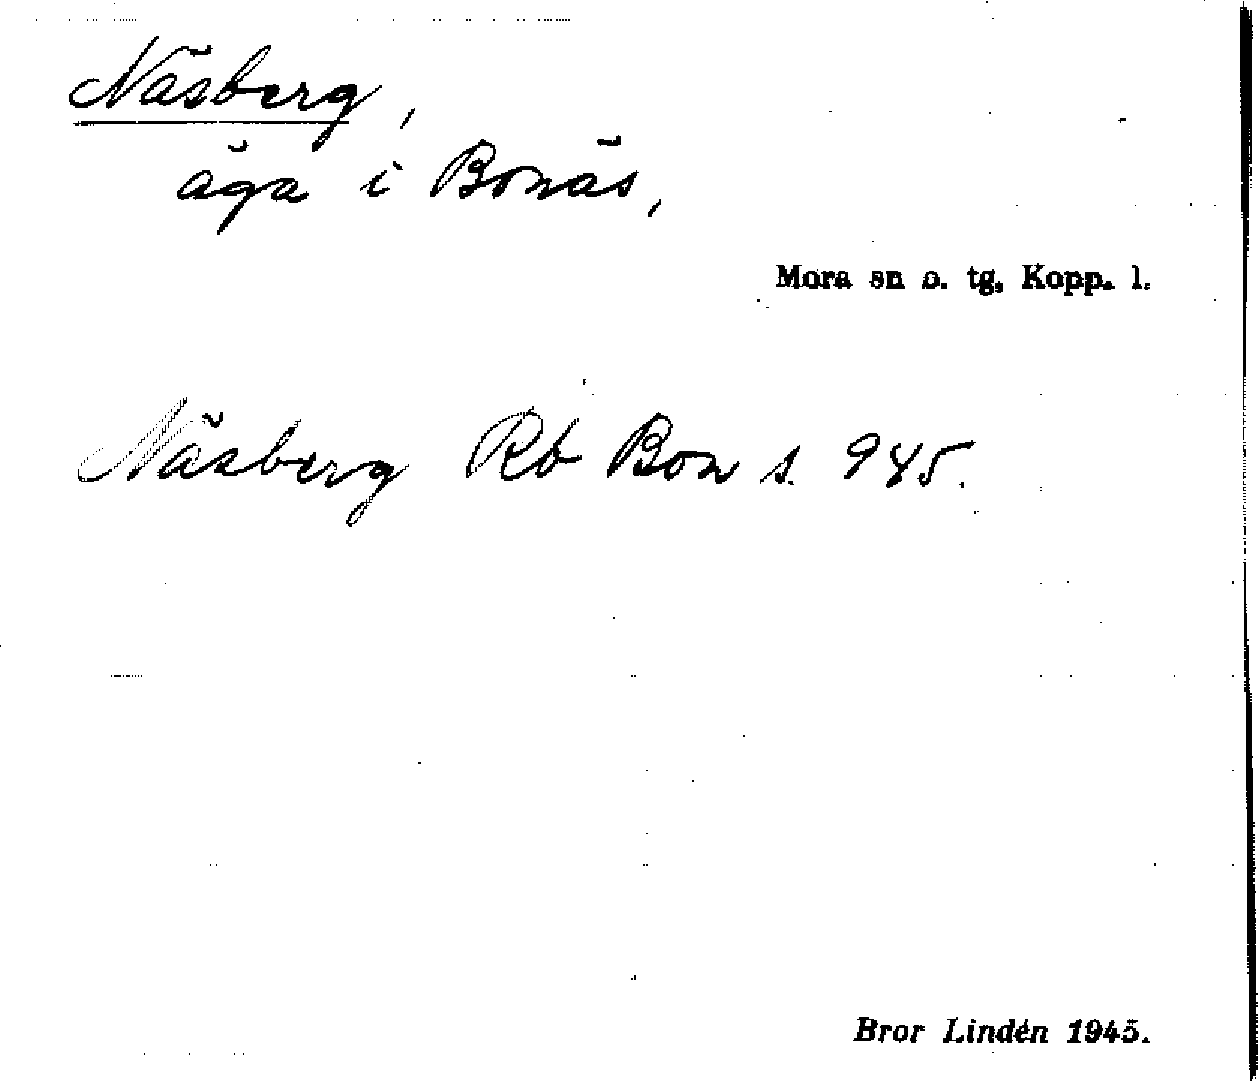 Näsberg,
äga i Bonäs,
Mora sn o. tg, Kopp. l.
Näsberg Rb Bon s. 945.
Bror Lindén 1945.